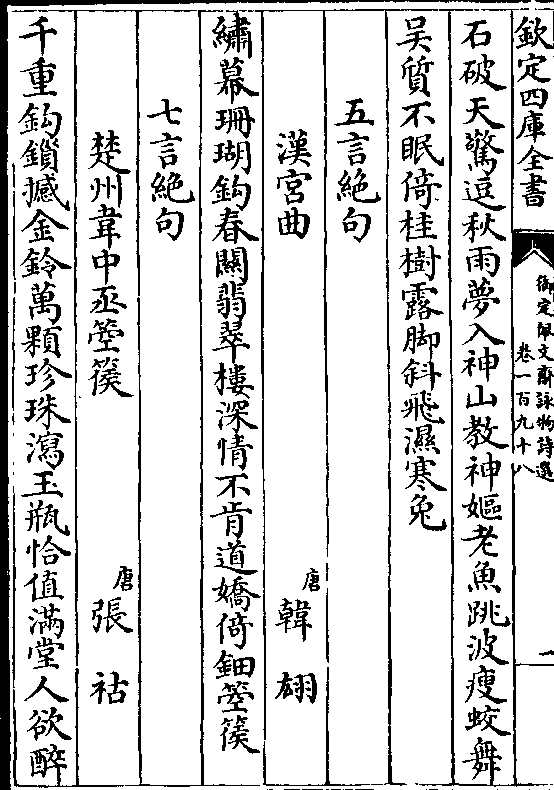 欽定四庫全書
御定佩文齋詠物詩選
卷一百九十八
一
石破天驚逗秋雨夢入神山教神嫗老魚跳波瘦蛟舞
吴質不眠倚桂樹露脚斜飛濕寒兔
五言絶句
漢宮曲
唐韓翃
繡幕珊瑚鈎春關翡翠樓深情不肯道嬌倚鈿箜篌
七言絶句
楚州韋中丞箜篌
唐張祜
千重鈎鎖撼金鈴萬顆珍珠瀉玉瓶恰值滿堂人欲醉